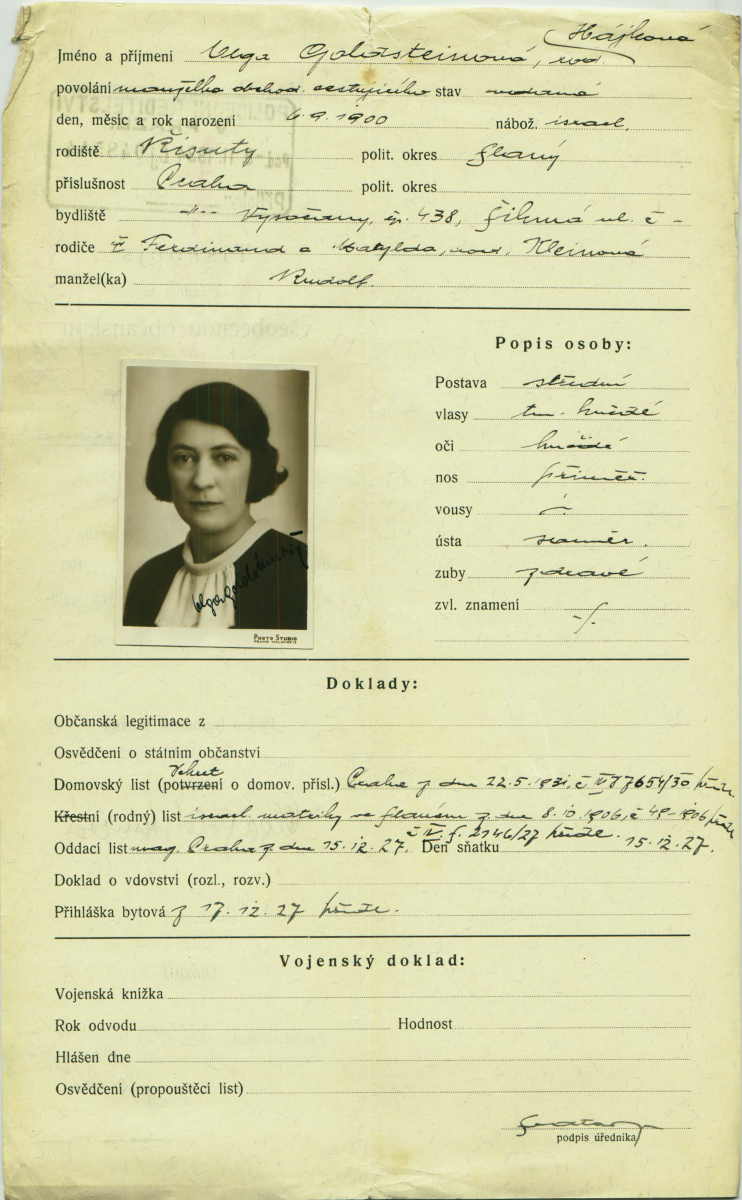 Hájková
Jméno a příjmení Olga Goldsteinová, roz.
povolání manželka obchod. cestujícího stav vdaná
den, měsíc a rok narození 6.9.1900 nábož. israel.
rodiště Řisuty polit. okres Slaný
příslušnost Praha polit. okres
bydliště -"- Vysočany, čp. 438, ul. č -
rodiče Ferdinand a Matylda, roz. Kleinová
manžel(ka) Rudolf.
Popis osoby:
Postava střední
vlasy tm. hnědé
oči hnědé
nos přiměř.
vousy
ústa
zuby zdravé
zvl. znamení
Olga Goldsteinová
PHOTO STUDIO
Doklady:
Občanská legitimace z
Osvědčení o státním občanství
Domovský list (potvrzení o domov. přísl.) Praha z dne 22.5.1931, č IV 7654/30
Křestní (rodný) list israel. matriky ve Slaném z dne 8.10.1906, č 49-1906
č IV. 2146/27
Oddací list mag. Praha z dne 15.12.27. Den sňatku 15.12.27.
Doklad o vdovství (rozl., rozv.)
Přihláška bytová z 17.12.27
Vojenský doklad:
Vojenská knížka
Rok odvodu Hodnost
Hlášen dne
Osvědčení (propouštěcí list)
podpis úředníka